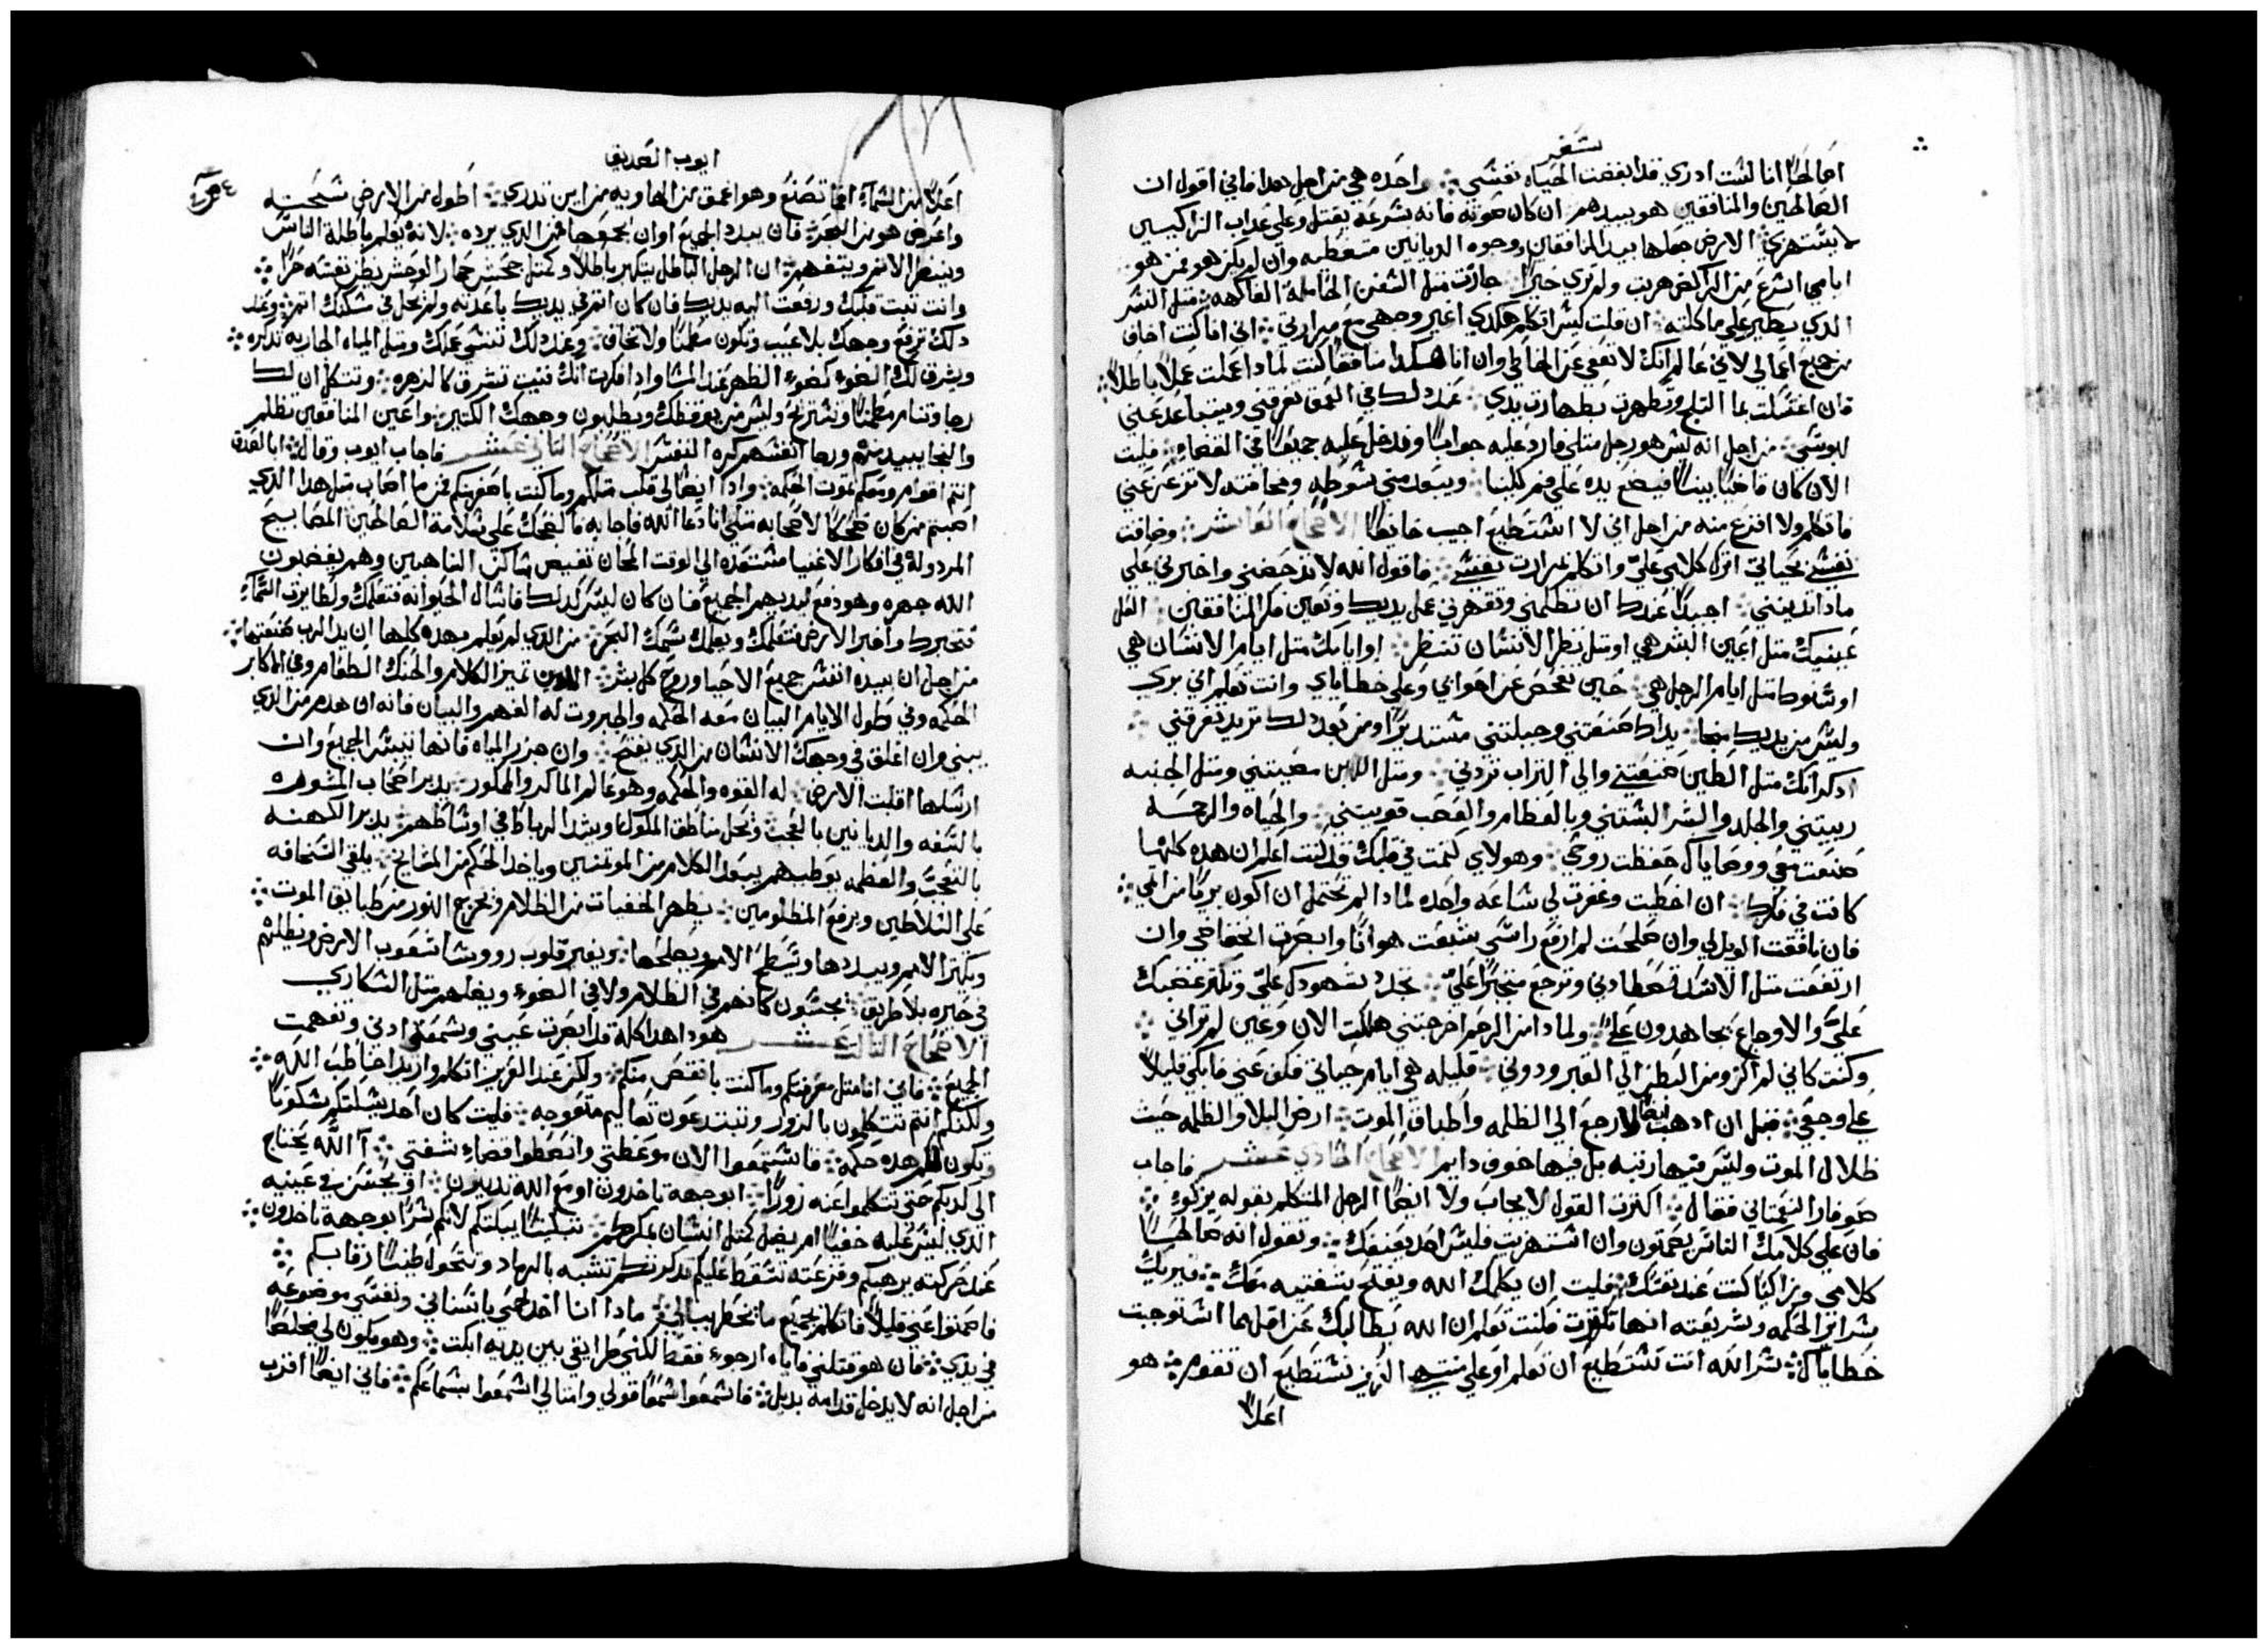 سفر
اصالحًا انا لست ادري قد ابغضت الحياه نفسي واحده هي من اجل هدا فاني اقول ان
الصالحين والمنافقين هو يبيدهم ان كان صوته فانه بسرعة يقتل وعلى عداب الزاكيين
لا يستهزي الارض جعلها بيد المنافقين وجوه الديانين متغطيه وان لم يكن هو فمن هو
ايامي اسرع من الراكض هربت ولم تري خيرًا جازت مثل السفن الحامله الفاكهه مثل النسر
الدي يطير على ماكلته ان قلت ليس اتكلم هكدي اغير وجهي مع مرارتي اني انا كنت اخاف
من جميع اعمالي لاني عالم انك لا تعفي عن الخاطي وان انا هكدا منافقًا كنت لمادا عملت عملًا باطلًا
فان اغتسلت بما الثلج وتطهرت بطهارت يدي عند دلك في العمق تغرقني ويتباعد عني
لبوسي من اجل انه ليس هو رجل مثلي فارد عليه جوابًا وندخل عليه جميعًا في القضاء فليت
الان كان فاحصًا بيننا فيضع يده على فم كلينا ويبعد مني سوطه ومخافته لا تزعزعني
فاتكلم ولا افزع منه من اجل اني لا استطيع اجيب خايفًا الاصحاح العاشر وضاقت
نفسي بحياتي اترك كلامي علي واتكلم بمرارت نفسي فاقول الله لا تدحضني واخبرني على
مادا تدينني اجيدًا عندك ان تظلمني وتقهرني عمل يديك وتعين فكر المنافقين العل
عينيك مثل اعين البشر هي او مثل نظر الانسان تنظر او ايامك مثل ايام الانسان هي
او سنوك مثل ايام الرجل هي حين تفحص عن اهوائي وعلى خطاياي وانت تعلم اني بري
وليس من يديك منجا يداك صنعتني وجبلتني مستديرًا ومن بعد دلك تريد تغرقني
ادكر انك مثل الطين صنعتني والى التراب تردني ومثل اللبن صفيتني ومثل الجبنه
ربيتني والجلد والبشر البستني وبالعظام والعصب قويتني والحياه والرحمه
صنعت معي ووصاياك حفظت روحي وهولاي كتمت في قلبك قد كنت اعلم ان هده كلها
كانت في فكرك ان اخطيت وغفرت لي ساعه واحده لمادا لم تحتمل ان اكون بريًا من اثمي
فان نافقت الويل لي وان صلحت لم ارفع راسي شبعت هوانًا وابصرت انخفاضي وان
ارتفعت مثل الاسد تصطادني وترجع متجبرًا علي تجدد شهودك علي وتكثر غضبك
علي والاوجاع يجاهدون علي ولمادا من الرحم اخرجتني هلكت الان وعين لم تراني
وكنت كاني لم اكن ومن البطن الى القبر ودوني قليله هي ايام حياتي فكف عني فابكي قليلًا
على وجعي قبل ان ادهب ايضًا لا ارجع الى الظلمه واطباق الموت ارض البلا والظلمه حيث
ظلال الموت وليس فيها رتبه بل فيها خوف دايم الاصحاح الحادي عشر فاجاب
صوفار النعمتاني فقال اكثرت القول لا يجاب ولا ايضًا الرجل المتكلم بقوله يزكوا
فان على كلامك الناس يصمتون وان استهزيت فليس احد يعنفك وتقول انه صالحًا
كلامي وزاكيًا كنت عند نفسك فليت ان يكلمك الله ويفتح شفتيه معك فيريك
سراير الحكمه وشريعته انها تكررت فكنت تعلم ان الله يطالبك عن اقل مما استوجبت
خطاياك سر الله انت تستطيع ان تعلم او على منتهى العزيز تستطيع ان تقوم هو
اعلا
ايوب الصديق
اعلا من السما انما تصنع وهو اعمق من الهاويه من اين تدري اطول من الارض مسحته
واعرض هو من البحر فان يبدد الجميع او ان يجمعها فمن الدي يرده لانه يعلم باطلة الناس
وينظر الاثم ويتفهم ان الرجل الباطل يتكبر باطلًا وكمثل جحش حمار الوحش يظن نفسه حرًا
وانت تبت قلبك ورفعت اليه يديك فان كان اثم في يديك باعدته ولم يحل في مسكنك اثم وعند
دلك ترفع وجهك بلا عيب وتكون مطمنًا ولا تخاف وعند دلك تنسى عملك ومثل المياه الجاريه تدكره
ويشرق لك الضوء كضوء الظهر عند المسا وادا فكرت انك فنيت تشرق كالزهره وتتكل ان لك
رجا وتنام مطمنًا وتستريح وليس من يوقظك ويطلبون وجهك الكثيرين واعين المنافقين تظلم
والنجا يبيد منهم ورجا انفسهم كره النفس الاصحاح الثاني عشر فاجاب ايوب وقال ابالعدة
انتم اقوام ومعكم تموت الحكمه وادا ايضًا لي قلب مثلكم وما كنت باصغر منكم فمن ما اصاب مثل هدا الدي
اصبتم من كان ضحكًا لاصحابه مثلي انا دعا الله فاجابه فالضحك على سلامة الصالحين المصابيح
المردوله في افكار الاغنيا مستعده الى الوقت المحان تفيض مساكن الناهبين وهم يغضبون
الله جهره وهو دفع ليديهم اجميع فان كان ليس كدلك فاسال الحيوانه فتعلمك ولطاير السماء
تخبرك واخبر الارض فتعلمك ويعلمك سمك البحر من الدي لم يعلم بهده كلها ان يد الرب صنعتها
من اجل ان بيده انفس جميع الاحيا وروح كل بشر الادن تميز الكلام والحنك الطعام وفي الاكابر
الحكمه وفي طول الايام البيان معه الحكمه والجبروت له الفهم والبيان فانه ان هدم من الدي
يبني وان اغلق في وجهك الانسان من الدي يفتح وان حزر المياه فانها تيبس الجميع وان
ارسلها اقلبت الارض له القوه والحكمه وهو عالم الماكر والممكور يدبر اصحاب المشوره
بالسفه والديانين بالعجب ويحل مناطق الملوك ويشد الرباط في اوساطهم يدبر الكهنه
بالتعجب والعظمه يوطيهم يبعد الكلام من الموتمنين وياخد الحكم من المشايخ يلقي السخافه
على السلاطين ويرفع المظلومين يظهر الخفيات من الظلام ويخرج النور من طبايق الموت
ويكبر الامم ويبددها ويسطح الامم ويصلحها ويغير قلوب رووسا شعوب الارض ويظلهم
في حيره بلا طريق يجسون كانهم في الظلام ولا في الضوء ويضلهم مثل السكاري
الاصحاح الثالث عشر هودا هدا كله قد ابصرت عيني وسمعت ادني وتفهمت
الجميع فاني انا مثل معرفتكم وما كنت بانقص منكم ولكن عند العزيز اتكلم واريد اخاطب الله
ولكنكم انتم تتكلمون بالزور وتبتدعون تعاليم متعوجه فليت كان احد يسكتكم سكوتًا
وتكون لكم هده حكمه فاستمعوا الان موعظتي واتعظوا قضاء شفتي آالله يحتاج
الى كدبكم حتى تتكلموا عنه زورًا ابوجهه تاخدون او مع الله تدينون او يحسن في عينيه
الدي ليس عليه خفيًا ام يضل كمثل انسان بمكركم تبكيتًا يبكتكم لانكم سرًا بوجهه تاخدون
عند حركته يرهبكم وفزعته تسقط عليكم تدكرتكم تشبه بالرماد وتتحول طينًا رقابكم
فاصمتوا عني قليلًا فاتكلم بجميع ما يخطر ببالي مادا انا اخد لحمي باسناني ونفسي موضوعه
في يدي فان هو قتلني فاياه ارجوء فقط لكني طرايقي بين يديه ابكت وهو يكون لي مخلصًا
من اجل انه لا يدخل قدامه بديل فاسمعوا سمعًا قولي وامثالي اسمعوا بسماعكم فاني ايضًا اقترب